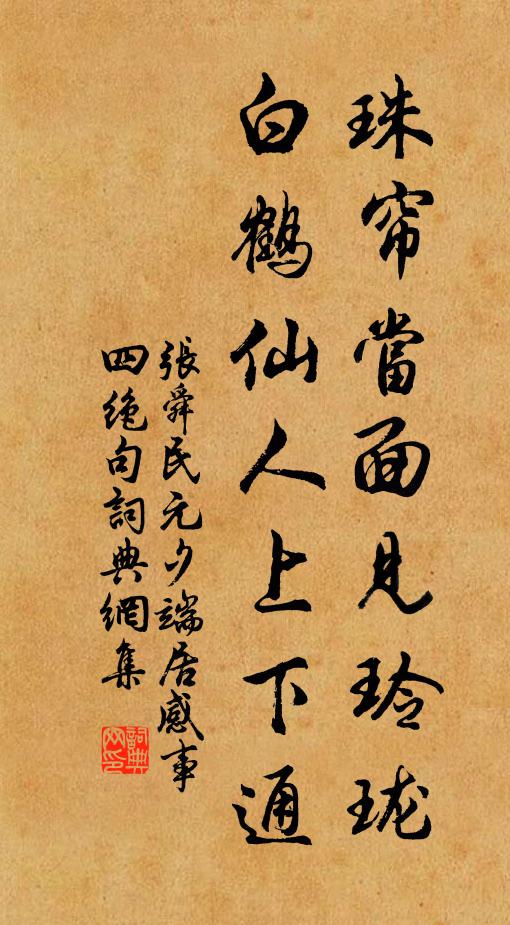 珠帘當面見玲珑
白鶴仙人上下通
張舜民元夕端居感事
四绝句詞典網集
詞典網印